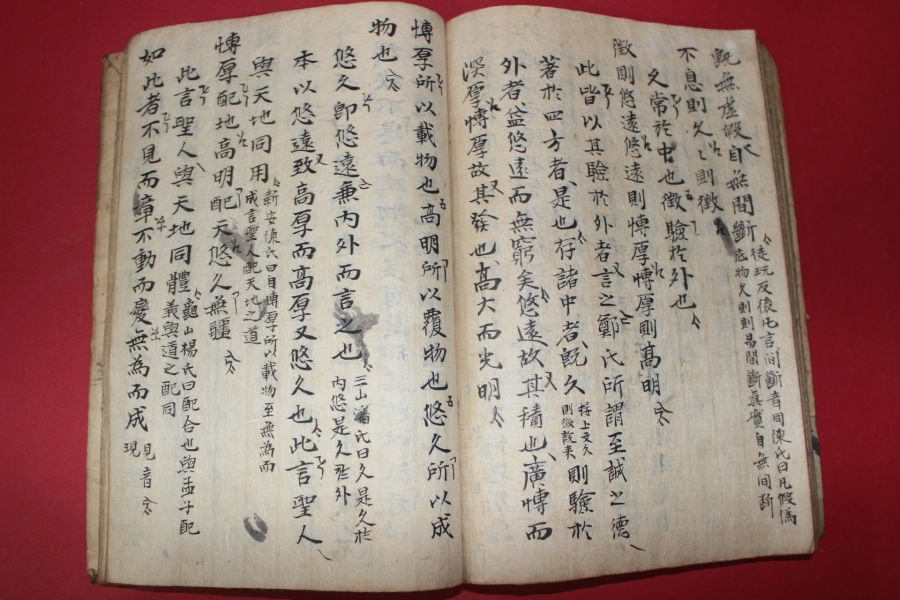 旣無虛假自無間斷
徒玩反後凡言間斷音同陳氏曰凡假僞
底物久則易間斷眞實自無間斷
不息則久久則徵
久常於中也徵驗於外也
徵則悠遠悠遠則博厚博厚則高明
此皆以其驗於外者言之鄭氏所謂至誠之德
著於四方者是也存諸中者旣久
接上文久
則徵說來
則驗於
外者益悠遠而無窮矣悠遠故其積也廣博而
深厚博厚故其發也高大而光明
博厚所以載物也高明所以覆物也悠久所以成
物也
悠久卽悠遠兼內外而言之也
三山潘氏曰久是久於
內悠是久於外
本以悠遠致高厚而高厚又悠久也此言聖人
與天地同用
新安陳氏曰自博厚所以載物至無為而
成言聖人配天地之道
博厚配地高明配天悠久無疆
此言聖人與天地同體
龜山楊氏曰配合也與孟子配
義與道之配同
如此者不見而章不動而變無為而成
見音
現